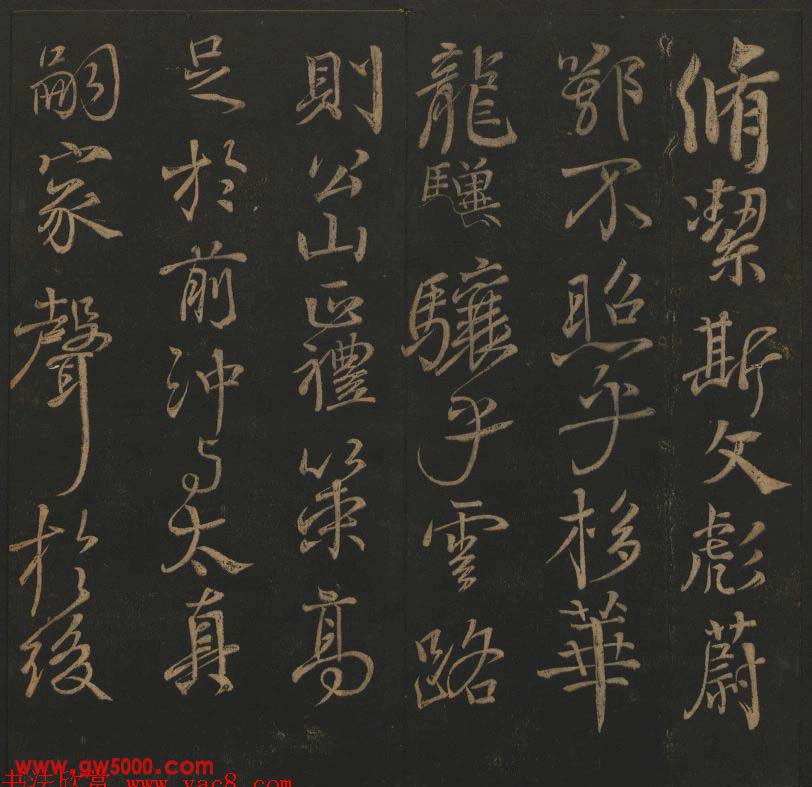 脩潔斯文彪蔚
鄂不照乎栘華
龍驥驤乎雲路
則公山正禮策高
足於前沖与太真
嗣家聲於後
www.gw5000.com
书法欣赏 www.yac8.com